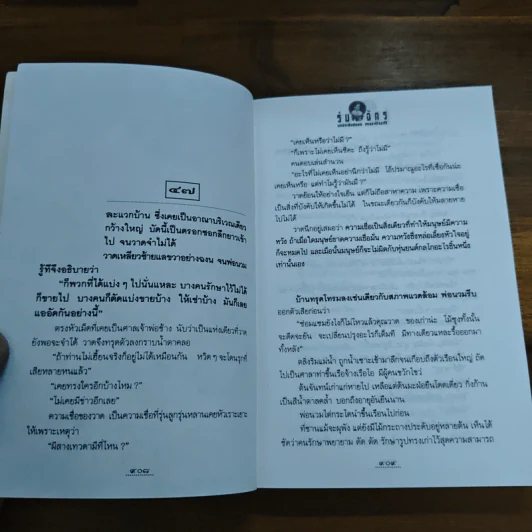 ๔๗
ละแวกบ้าน ซึ่งเคยเป็นอาณาบริเวณเดียว
กว้างใหญ่ บัดนี้เป็นตรอกซอกลึกยาวเข้า
ไป จนวาดจำไม่ได้
วาดเหลียวซ้ายแลขวาอย่างฉงน จนพ่อนวม
รู้ทีจึงอธิบายว่า
"ก็พวกที่ได้แบ่งๆ ไปนั่นแหละ บางคนรักษาไว้ไม่ได้
ก็ขายไป บางคนก็ตัดแบ่งขายบ้าง ให้เช่าบ้าง มันก็เลย
แออัดกันอย่างนี้"
ตรงหัวมืดที่เคยเป็นศาลเจ้าพ่อช้าง นับว่าเป็นแห่งเดียวที่วาด
ยังพอจะจำได้ วาดจึงทรุดตัวลงกราบน้ำตาคลอ
"ถ้าท่านไม่เฮี้ยนจริงก็อยู่ไม่ได้เหมือนกัน หวิดๆ จะโดนรุกที่
เสียหลายหนแล้ว"
"เคยทรงใครอีกบ้างไหม?"
"ไม่เคยมีข่าวอีกเลย"
ความเชื่อของวาด เป็นความเชื่อที่รุ่นลูกรุ่นหลานเคยหัวเราะเยาะ
ให้เพราะเหตุว่า
"ผีสางเทวดามีที่ไหน?"
๕๐๘
"เคยเห็นหรือว่าไม่มี?"
"ก็เพราะไม่เคยเห็นซีคะ ถึงรู้ว่าไม่มี"
คนตอบเล่นสำนวน
"อะไรที่ไม่เคยเห็นอย่านึกว่าไม่มี ได้ปรมาณูอะไรที่เชื่อกันน่ะ
เคยเห็นหรือ แต่ทำไมรู้ว่ามันมี?"
วาดย้อนให้อย่างใจเย็น แต่ก็ไม่ถือสาหาความ เพราะความเชื่อ
เป็นสิ่งที่บังคับให้เกิดขึ้นไม่ได้ ในขณะเดียวกันก็บังคับให้มลายหาย
ไปไม่ได้
วาดนึกอยู่เสมอว่า ความเชื่อเป็นสิ่งเดียวที่ทำให้มนุษย์มีความ
หวัง ถ้าเมื่อใดมนุษย์ขาดความเชื่อมั่น ความหวังซึ่งหล่อเลี้ยงหัวใจอยู่
ก็จะหมดไป และเมื่อนั้นมนุษย์ก็จะไม่ผิดกับหุ่นยนต์กลไกอะไรชิ้นหนึ่ง
เท่านั้นเอง
บ้านทรุดโทรมลงเช่นเดียวกับสภาพแวดล้อม พ่อนวมรีบ
ออกตัวเสียก่อนว่า
"ซ่อมแซมยังไงก็ไม่ไหวแล้วคุณวาด ของเก่าน่ะ ไม้ซุงทั้งนั้น
จะดีดจะยัน จะเปลี่ยนปรุงอะไรก็เต็มที มีทางเดียวแหละรื้อออกมา
ทั้งหลัง"
ตลิ่งริมแม่น้ำ ถูกน้ำเซาะเข้ามาลึกจนเกือบถึงตัวเรือนใหญ่ ถัด
ไปเป็นศาลาท่าขึ้นเรือจ้างเรือไอ มีผู้คนขวักไขว่
ต้นจันทน์เก่าแก่หายไป เหลือแต่ต้นมะม่อยืนโดดเดี่ยว กิ่งก้าน
เป็นสีน้ำตาลคล้ำ บอกถึงอายุอันยืนนาน
พ่อนวมไต่กระไดนำขึ้นเรือนไปก่อน
ที่ชานแม้จะผุพัง แต่ยังมีไม้กระถางประดับอยู่หลายต้น เห็นได้
ชัดว่าคนรักษาพยายาม ดัด ตัด รักษารูปทรงเก่าไว้สุดความสามารถ
๕๐๙